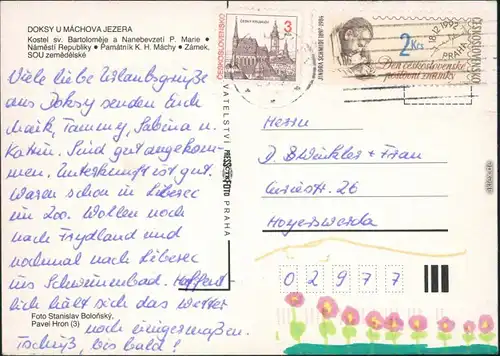 DOKSY U MÁCHOVA JEZERA
Kostel sv. Bartoloměje a Nanebevzetí P. Marie •
Náměstí Republiky • Památník K. H. Máchy • Zámek,
SOU zemědělské
Viele liebe Urlaubsgrüße
aus Doksy senden Euch
Maik, Tammy, Sabina u.
Katrin. Sind gut angekom-
men. Unterkunft ist gut.
Waren schon in Liberec
im Zoo. Wollen noch
nach Frydland und
nochmal nach Liberec
ins Schwimmbad. Hoffent-
lich hält sich das Wetter
noch einigermaßen.
Tschüß, bis bald!
Foto Stanislav Boloňský,
Pavel Hron (3)
VATELSTVÍ PRESSFOTO PRAHA
ČESKOSLOVENSKO
3
ČESKOSLOVENSKO
2 Kčs
Den československé
poštovní známky
JINDRA SCHMIDT 1897-1984
PRAHA
Herrn
D. Winkler + Frau
Curiestr. 26
Hoyerswerda
02977